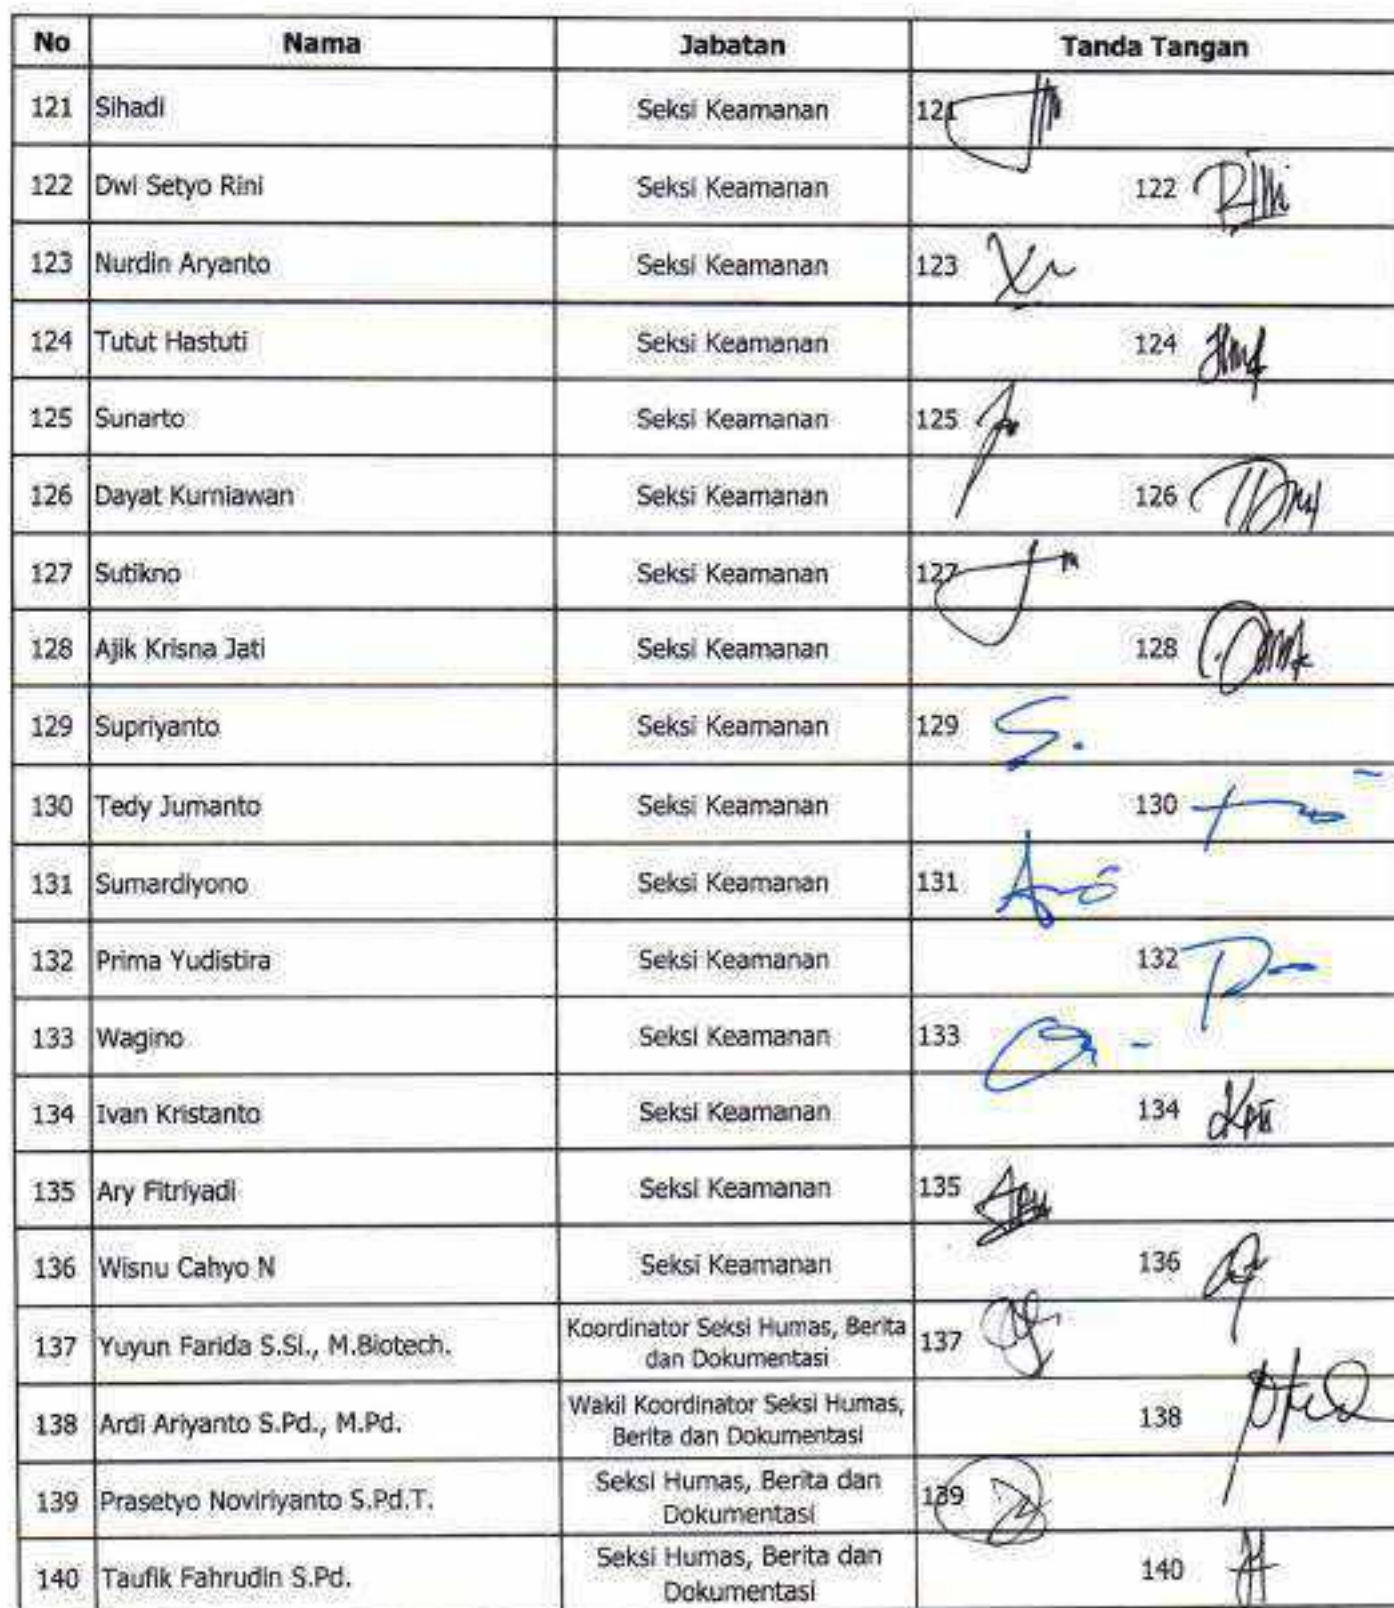 No Nama Jabatan Tanda Tangan
121 Sihadi Seksi Keamanan 121
122 Dwi Setyo Rini Seksi Keamanan 122
123 Nurdin Aryanto Seksi Keamanan 123
124 Tutut Hastuti Seksi Keamanan 124
125 Sunarto Seksi Keamanan 125
126 Dayat Kurniawan Seksi Keamanan 126
127 Sutikno Seksi Keamanan 127
128 Ajik Krisna Jati Seksi Keamanan 128
129 Supriyanto Seksi Keamanan 129
130 Tedy Jumanto Seksi Keamanan 130
131 Sumardiyono Seksi Keamanan 131
132 Prima Yudistira Seksi Keamanan 132
133 Wagino Seksi Keamanan 133
134 Ivan Kristanto Seksi Keamanan 134
135 Ary Fitriyadi Seksi Keamanan 135
136 Wisnu Cahyo N Seksi Keamanan 136
137 Yuyun Farida S.Si., M.Biotech. Koordinator Seksi Humas, Berita
dan Dokumentasi 137
138 Ardi Ariyanto S.Pd., M.Pd. Wakil Koordinator Seksi Humas,
Berita dan Dokumentasi 138
139 Prasetyo Noviriyanto S.Pd.T. Seksi Humas, Berita dan
Dokumentasi 139
140 Taufik Fahrudin S.Pd. Seksi Humas, Berita dan
Dokumentasi 140